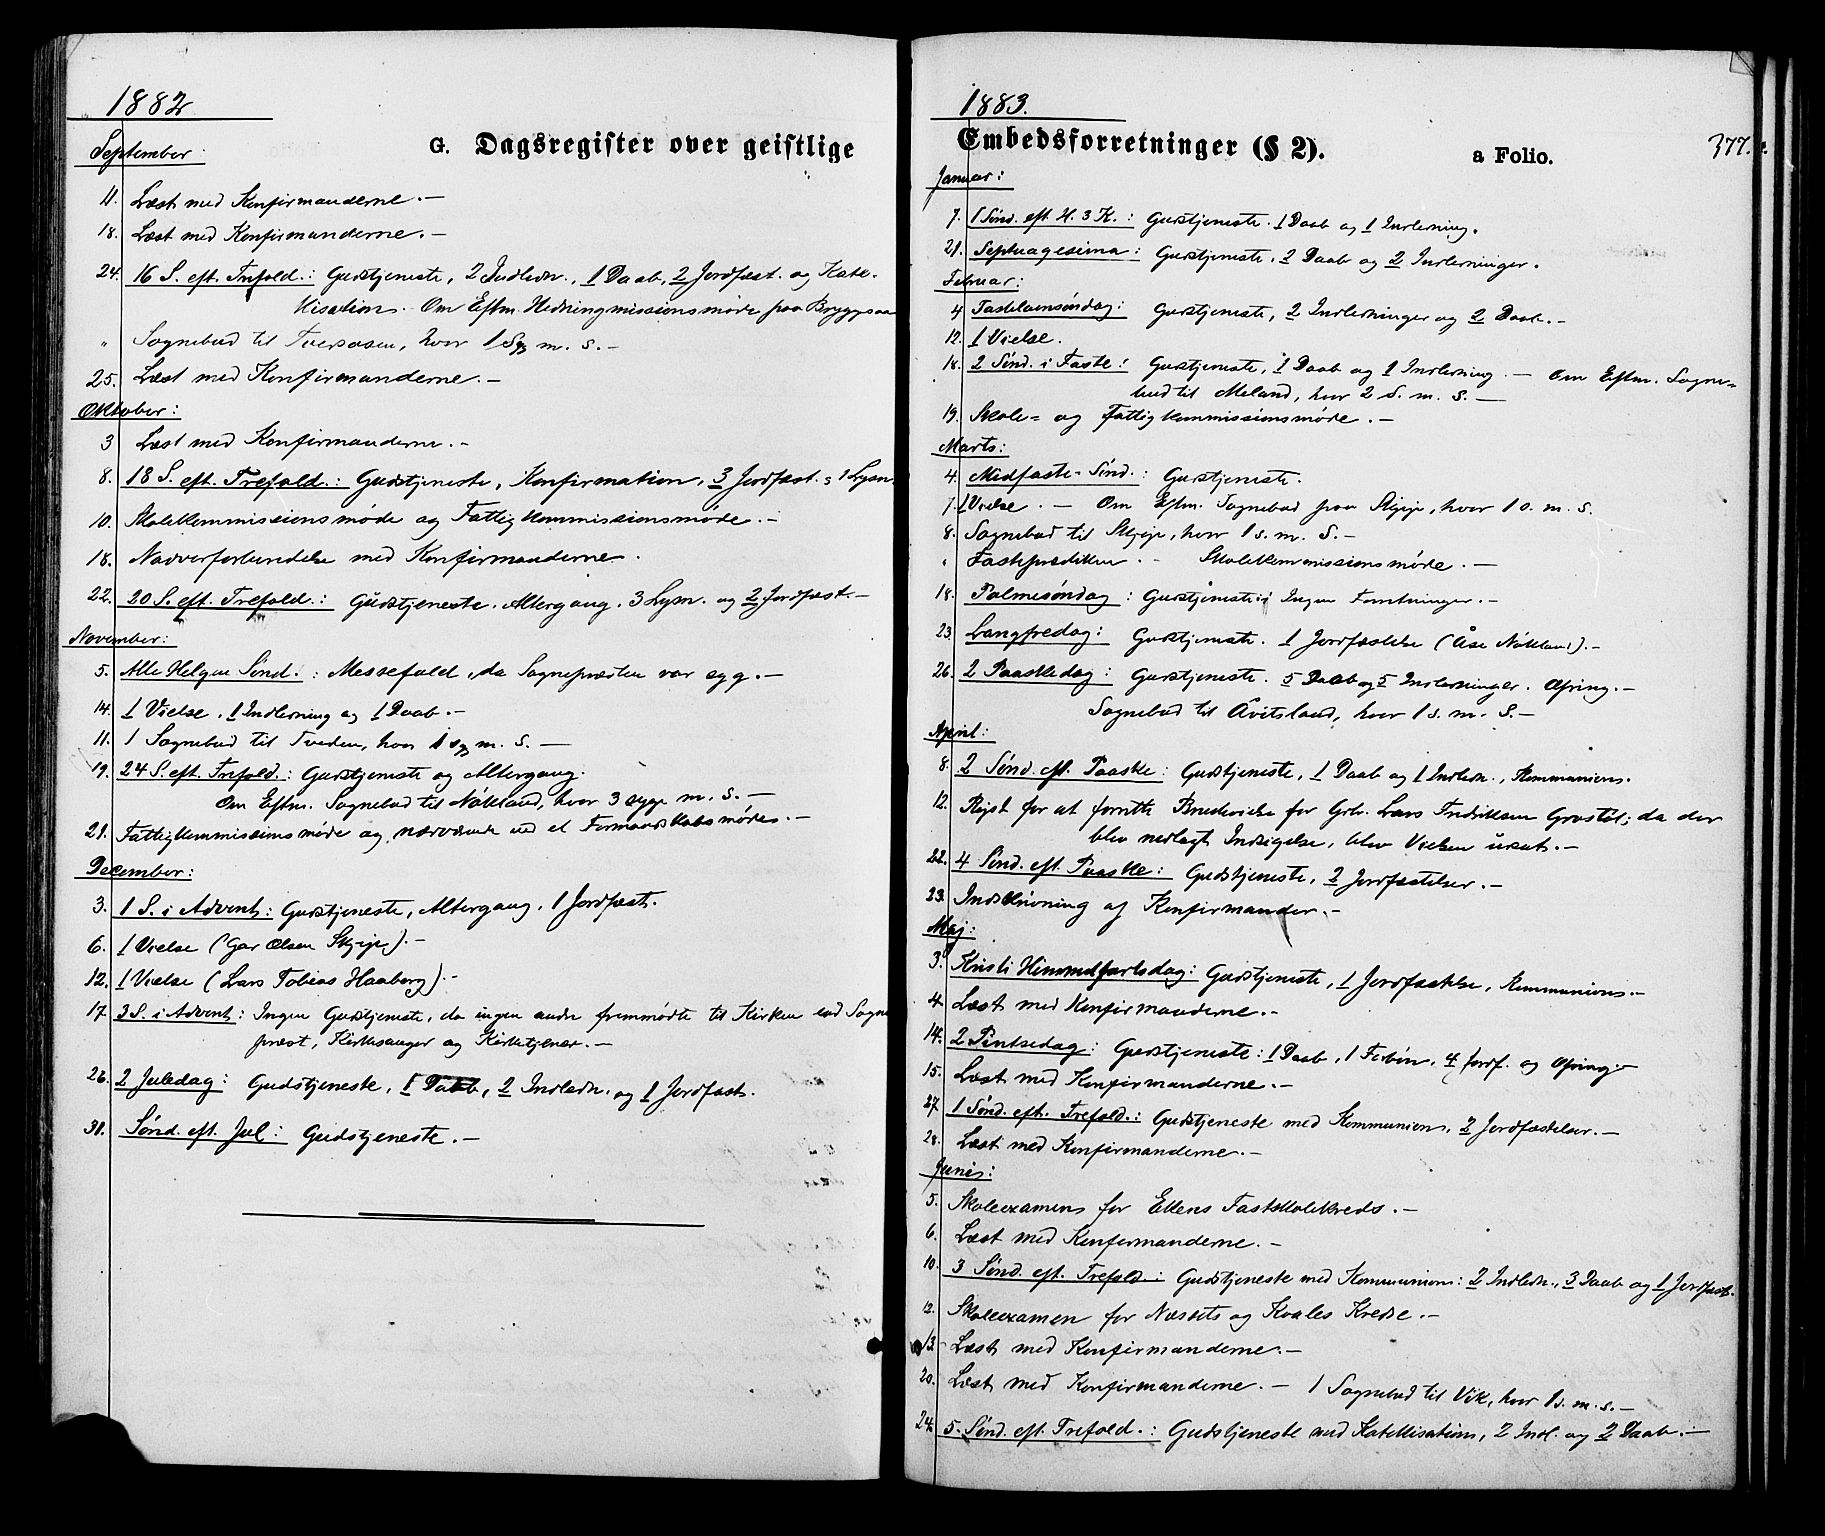 1882
G. Dagsregister over geistlige
September:
11. Læst med Konfirmanderne. —
18. Læst med Konfirmanderne. —
24. 16 S. eft. Trefold.: Gudstjeneste, 2 Indledn., 1 Daab, 2 Jordfæst. og Kate-
kisation. Om Eftm. Hedningmissionsmøde paa Bryggesaa
" Sognebud til Tveraasen, hvor 1 Syg m. S. —
25. Læst med Konfirmanderne. —
Oktober:
3 Læst med Konfirmanderne. —
8. 18 S. eft. Trefold.: Gudstjeneste, Konfirmation, 3 Jordfæst. 1 Lysn.
10. Skolekommissionsmøde og Fattigkommissionsmøde. —
18. Nadverforberedelse med Konfirmanderne.
22. 20 S. eft. Trefold.: Gudstjeneste. Altergang. 3 Lysn. og 2 Jordfæst. —
November:
5. Alle Helgen Sønd.: Messefald, da Sognepræsten var syg. —
14. 1 Vielse. 1 Indledning og 1 Daab. —
11. 1 Sognebud til Tveden, hvor 1 syg m. S. —
19. 24 S. eft. Trefold.: Gudstjeneste og Altergang.
Om Eftm. Sognebud til Nökland, hvor 3 syge m. S. —
21. Fattigkommissionsmøde og nærværende ved et Formandskabsmøde. —
December:
3. 1 S. i Advent: Gudstjeneste, Altergang. 1 Jordfæst.
6. 1 Vielse (Gar Olsen Skjeje). —
12. 1 Vielse (Lars Tobias Haaberg). —
17. 3 S. i Advent: Ingen Gudstjeneste, da ingen andre fremmødte til Kirken end Sogne
præst, Kirkesanger og Kirketjener. —
26. 2 Juledag: Gudstjeneste, 1 Daab, 2 Indledn. og 1 Jordfæst.
31. Sønd. eft. Jul: Gudstjeneste. —
1883.
Embedsforretninger (§ 2).
a Folio.
377.
Januar:
7. 1 Sønd. eft. H. 3 K.: Gudstjeneste. 1 Daab og 1 Indledning.
21. Septuagesima: Gudstjeneste, 2 Daab og 2 Indledninger.
Februar:
4 Fastelavnsøndag: Gudstjeneste, 2 Indledninger og 2 Daab. —
12. 1 Vielse.
18. 2 Sønd. i Faste: Gudstjeneste, 1 Daab og 1 Indledning. — Om Eftm. Sogne=
bud til Meland, hvor 2 S. m. S. —
19. Skole= og Fattigkommissionsmøde. —
Marts:
4. Midfaste-Sønd.: Gudstjeneste.
7. 1 Vielse. — Om Eftm. Sognebud paa Skjeje, hvor 1 s. m. S.
8. Sognebud til Skjeje, hvor 1 s. m. S. —
" Fasteprædiken. — Skolekommissionsmøde. —
18. Palmesøndag: Gudstjeneste; Ingen Forretninger. —
23. Langfredag: Gudstjeneste. 1 Jordfæstelse (Åse Nökland). —
26. 2 Paaskedag: Gudstjeneste. 5 Daab og 5 Indledninger. Ofring. —
Sognebud til Åvitsland, hvor 1 s. m. S. —
April:
8. 2 Sønd. eft. Paaske: Gudstjeneste, 1 Daab og 1 Indledn., Kommunion.
12. Rejst for at forrette Brudevielse for Gbr. Lars Fredriksen Grostöl; da der
blev nedlagt Indsigelse, blev Vielsen udsat. —
22. 4 Sønd. eft. Paaske: Gudstjeneste, 2 Jordfæstelser. —
23. Indskrivning af Konfirmander. —
Maj:
3. Kristi Himmelfartsdag: Gudstjeneste, 1 Jordfæstelse, Kommunion. —
4. Læst med Konfirmanderne. —
14. 2 Pintsedag: Gudstjeneste: 1 Daab, 1 Forbön, 4 Jordf. og Ofring. —
15. Læst med Konfirmanderne. —
27 1 Sønd. eft. Trefold.: Gudstjeneste med Kommunion, 2 Jordfæstelser. —
28. Læst med Konfirmanderne. —
Juni:
5. Skoleexamen for Ellens Fastskolekreds. —
6. Læst med Konfirmanderne. —
10. 3 Sønd. eft. Trefold.: Gudstjeneste med Kommunion: 2 Indledn., 3 Daab og 1 Jordfæst.
12. Skoleexamen for Næssets og Kvales Kredse. —
13. Læst med Konfirmanderne. —
20. Læst med Konfirmanderne. — 1 Sognebud til Vik, hvor 1 s. m. s. —
24. 5. Sønd. eft. Trefold.: Gudstjeneste med Katekisation, 2 Indl. og 2 Daab. —